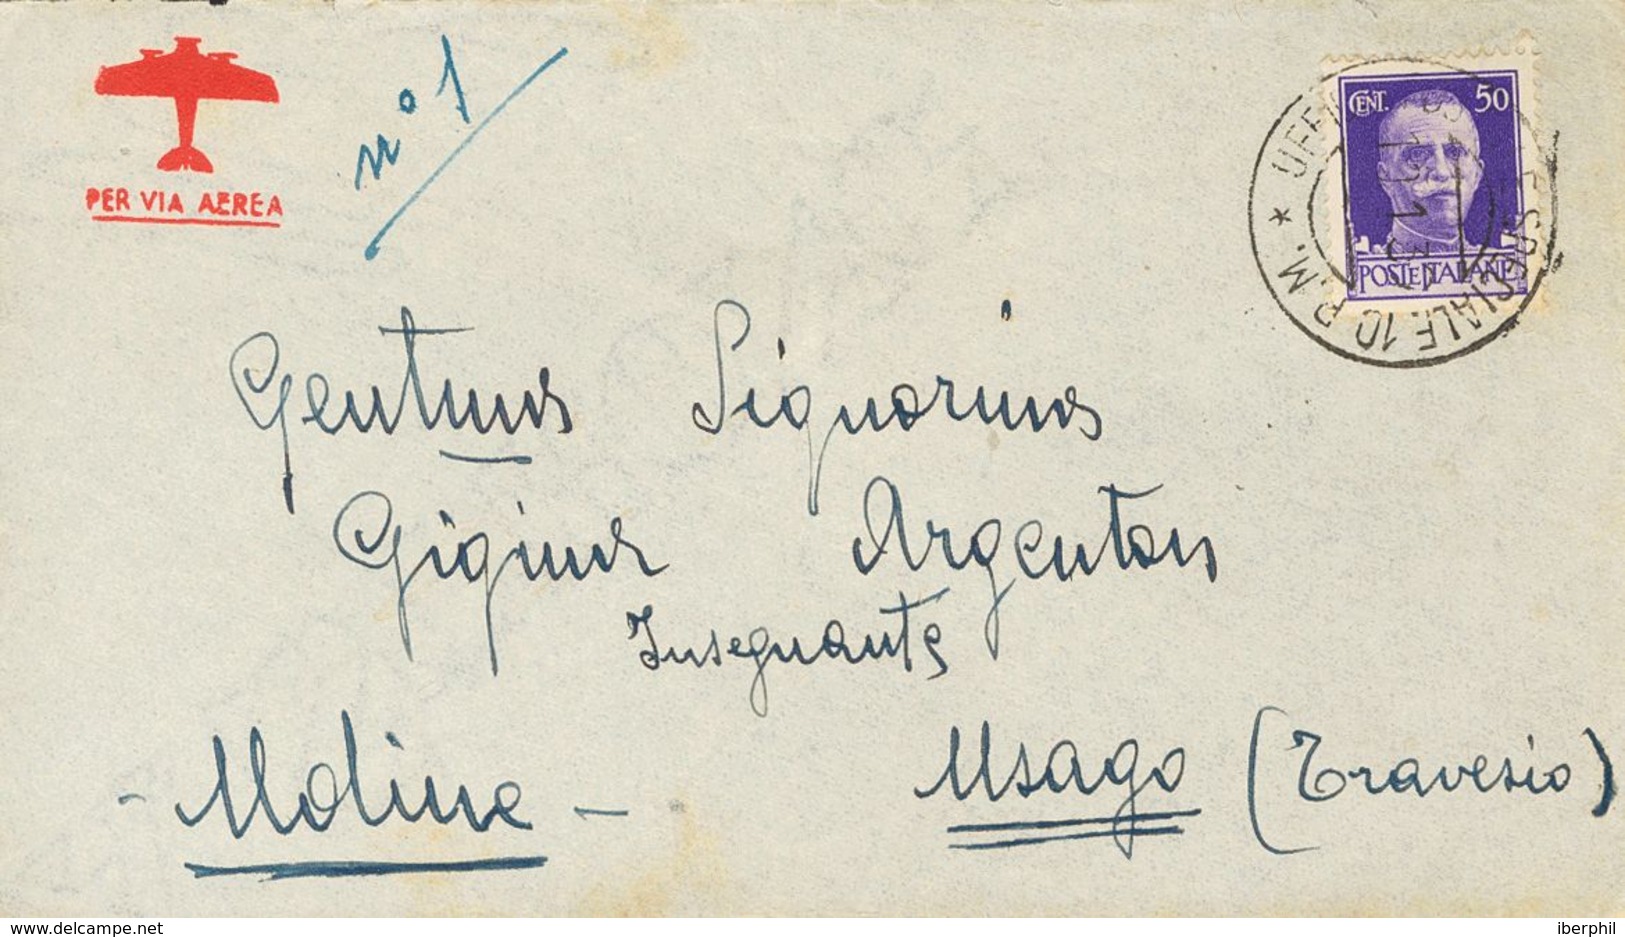 PER VIA AEREA
n° 1
CENT. 50
POSTE ITALIANE
* UFFI SPECIALE 10 R.M.
Gentma Signorina
Gigina Argenton
Insegnante
- Moline - Usago (Travesio)
delcampe.net
iberphil